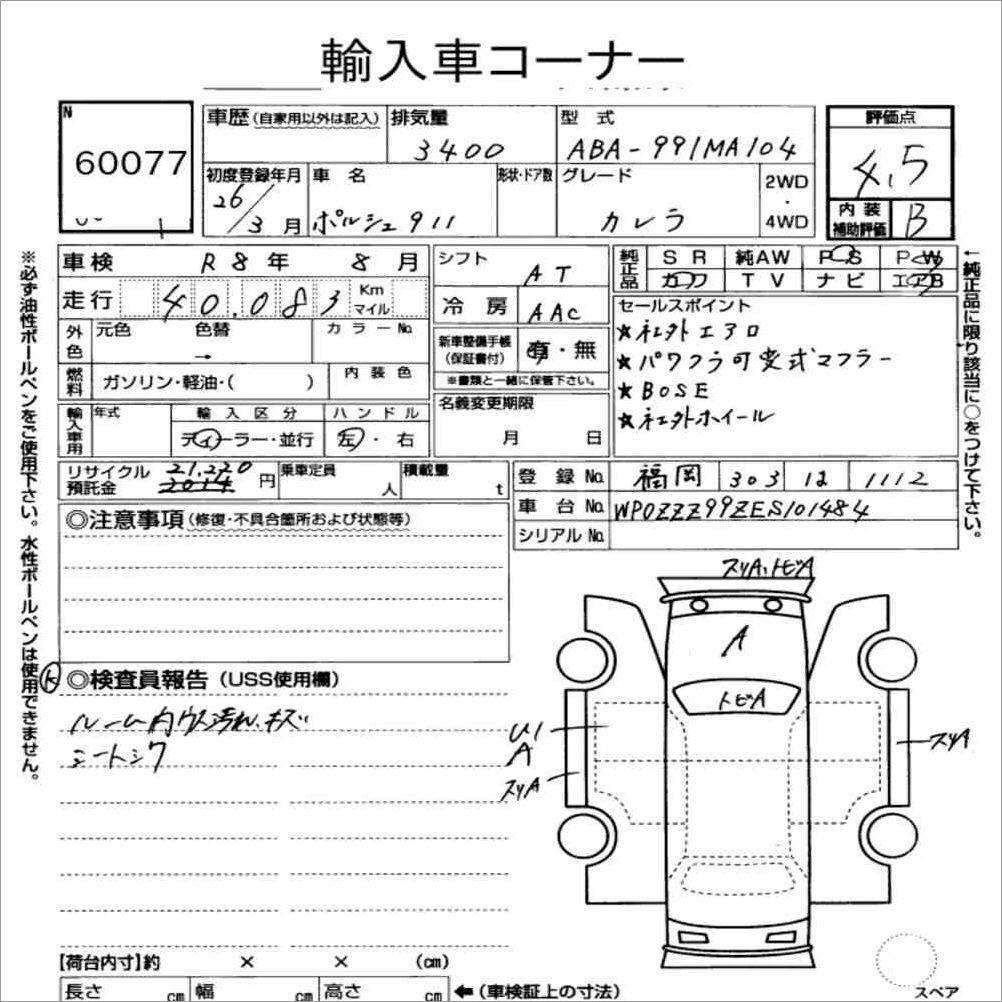 輸入車コーナー
N
60077
車歴 (自家用以外は記入) 排気量 3400 型式 ABA-991MA104
評価点 4.5
初度登録年月 26/3月 車名 ポルシェ911 形状・ドア数 グレード カレラ 2WD・4WD
内装補助評価 B
車検 R8年 8月
走行 40.083 Km マイル
外色 元色 色替 → カラーNo.
燃料 ガソリン・軽油・( ) 内装色
輸入車用 年式 輸入区分 ディーラー・並行 ハンドル 左・右
シフト AT
冷房 AAC
新車整備手帳 (保証書付) 有・無
※書類と一緒に保管下さい。
名義変更期限 月 日
純正品 SR 純AW PS PW
カワ TV ナビ エアB
セールスポイント
★社外エアロ
★パワフラ可変式マフラー
★BOSE
★社外ホイール
リサイクル預託金 21,220 円 乗車定員 人 積載量 t
登録No. 福岡 303 12 1112
車台No. WP0ZZZ99ZES101484
シリアルNo.
◎注意事項 (修復・不具合箇所および状態等)
◎検査員報告 (USS使用欄)
ルーム内ウス汚れ、キズ
シートシワ
スリA、トビA
A
トビA
U1
A
スリA
スリA
【荷台内寸】約 × × (cm)
長さ cm 幅 cm 高さ cm ←(車検証上の寸法)
スペア
※必ず油性ボールペンをご使用下さい。水性ボールペンは使用できません。
←純正品に限り該当に○をつけて下さい。